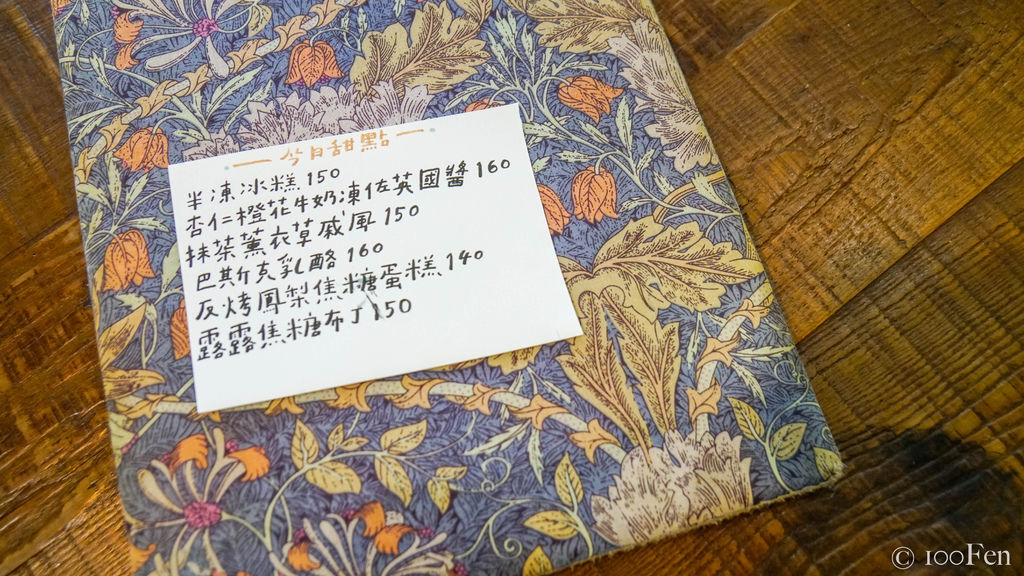 今日甜點
半凍冰糕 150
杏仁橙花牛奶凍佐英國醬 160
抹茶薰衣草戚風 150
巴斯克乳酪 160
反烤鳳梨焦糖蛋糕 140
露露焦糖布丁 150
© 100Fen